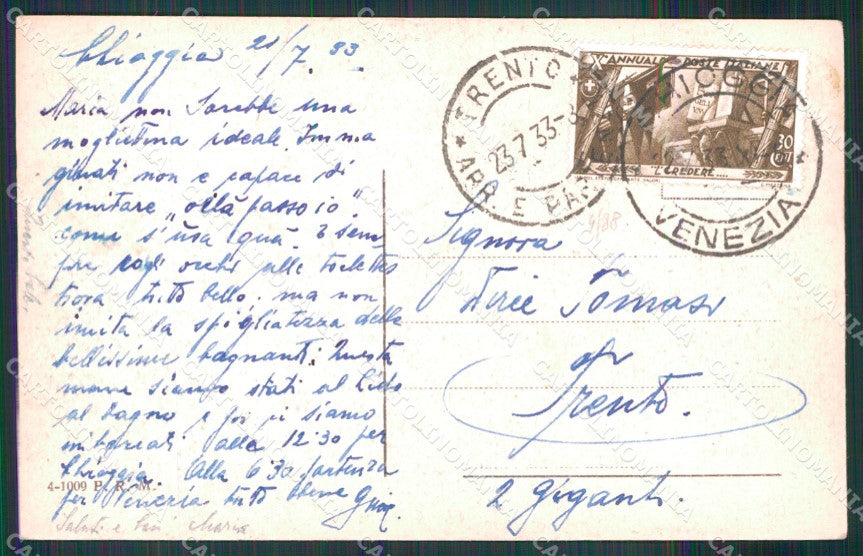 Chioggia 21/7 33
Maria non Sarebbe una
mogliettina ideale. Imma
ginati non e capace di
imitare „ollà passo io"
come s'usa quà. E sem
pre cogli occhi alle toelettes
trova tutto bello. ma non
imita la spigliatezza delle
bellissime bagnanti. Questa
mane siamo stati al Lido
al bagno e poi ci siamo
imbarcati alle 12.30 per
Chioggia. Alle 6.30 partenza
per Venezia tutto bene
Saluti e Maria
4-1009 P. R. M.
TRENTO
23.7.33-8
ARR. E PAR
X° ANNUALE POSTE ITALIANE
30
L'CREDERE....
CHIOGGIA
VENEZIA
4/88
Signora
Tomasi
Trento.
2 Giganti.
CARTOLINOMANIA